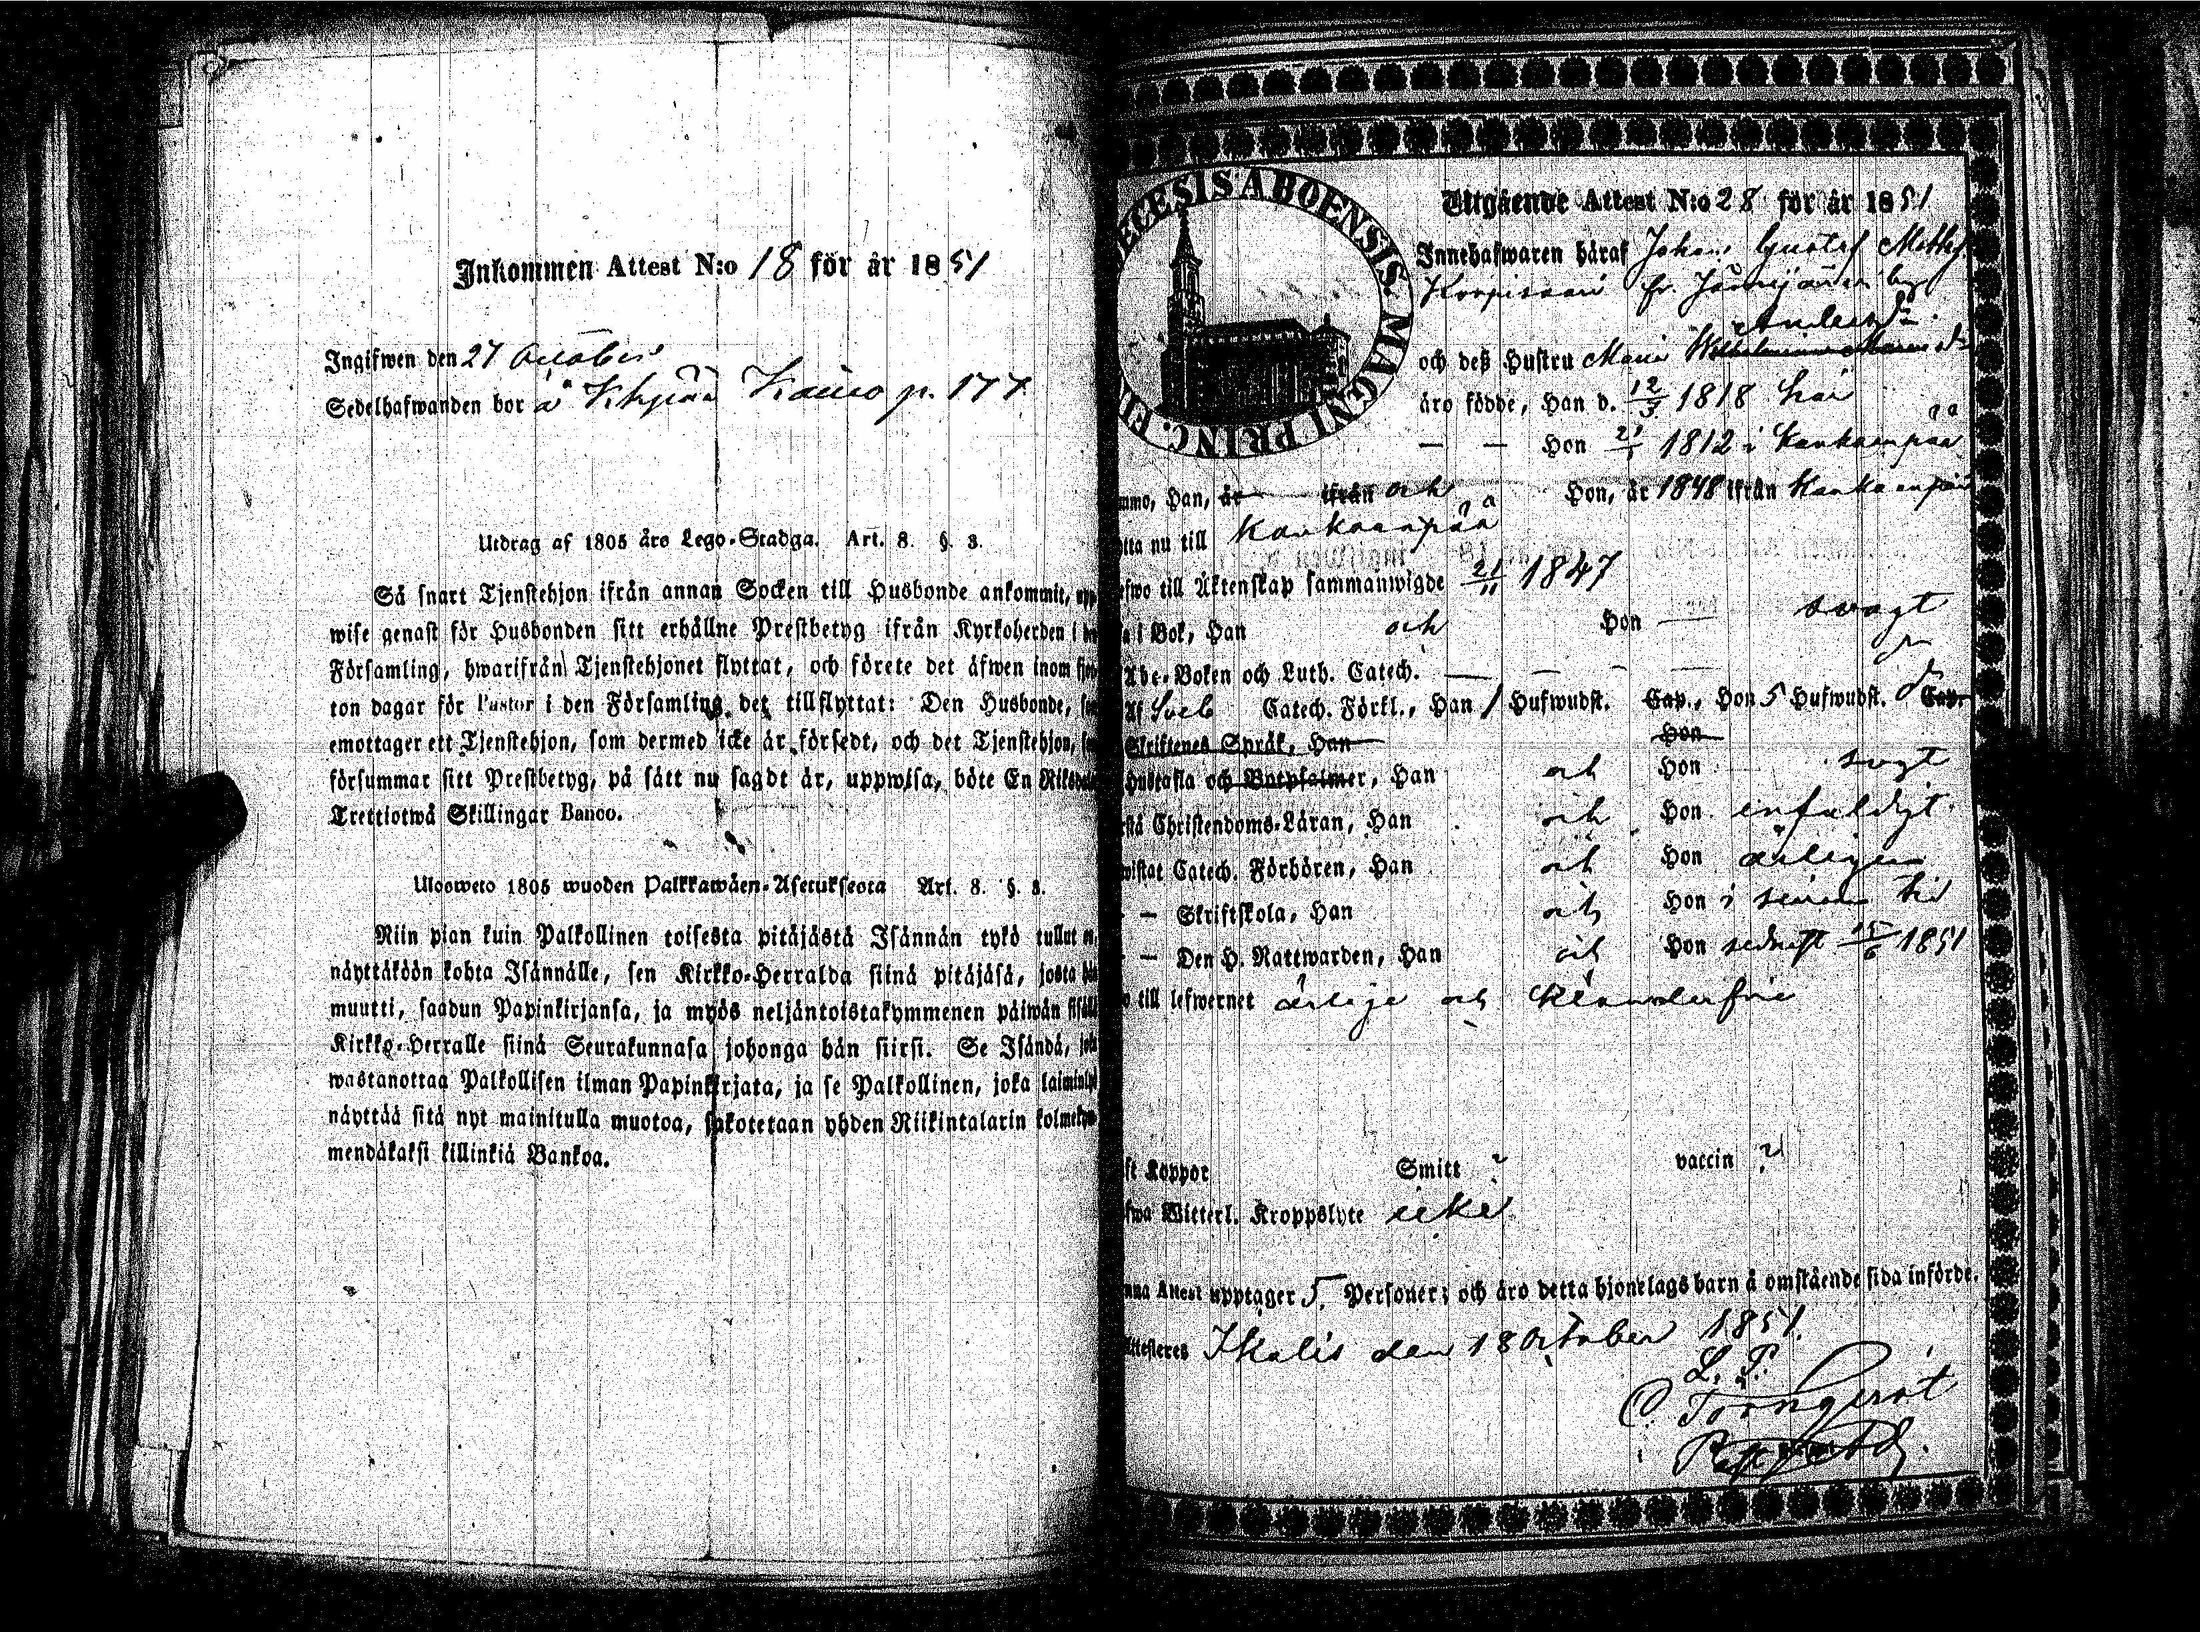 Inkommen Attest N:o 18 för år 1851
Ingifwen den 27 October
Sedelhafwanden bor å p. 177
Utdrag af 1805 års Lego-Stadga. Art. 8. §. 3.
Så snart Tjenstehjon ifrån annan Socken till Husbonde ankommit, upp
wise genast för Husbonden sitt erhållne Prestbetyg ifrån Kyrkoherden i
Församling, hwarifrån Tjenstehjonet flyttat, och förete det äfwen inom
ton dagar för Pastor i den Församling det tillflyttat: Den Husbonde,
emottager ett Tjenstehjon, som dermed icke är försedt, och det Tjenstehjon,
försummar sitt Prestbetyg, på sätt nu sagdt är, uppwisa, böte En
Trettiotwå Skillingar Banco.
Ulosweto 1805 wuoden Palkkawäen-Asetuksesta Art. 8. §. 3.
Niin pian kuin Palkollinen toisesta pitäjästä Isännän tykö tullut
näyttäköön kohta Isännälle, sen Kirkko-Herralda siinä pitäjäsä, josta
muutti, saadun Papinkirjansa, ja myös neljäntoistakymmenen päiwän
Kirkko-Herralle siinä Seurakunnasa johonga hän siirsi. Se Isändä,
wastanottaa Palkollisen ilman Papinkirjata, ja se Palkollinen, joka
näyttää sitä nyt mainitulla muotoa, sakotetaan yhden Riikintalarin
mendäkaksi killinkiä Bankoa.
ABOENSIS. MAGNI PRINC.
Utgående Attest N:o 28 för år 1851
Innehafwaren häraf Johan Gustaf
fr. by
och deß Hustru Maria
äro födde, Han d. 12/3 1818 här
— — Hon 1812 i Kankaanpää
Han, är ifrån och Hon, år 1848 ifrån Kankaanpää
nu till Kankaanpää
till Äktenskap sammanwigde 21/11 1847
i Bok, Han och Hon svagt
Abc-Boken och Luth. Catech.
Catech. Förkl., Han 1 Hufwudst. Cap., Hon 5 Hufwudst. Cap.
Skriftenes Språk, Han Hon
Hustafla och Botpsalmer, Han och Hon svagt
Christendoms-Läran, Han och Hon enfaldigt
Catech. Förhören, Han och Hon årligen
— Skriftskola, Han och Hon i sinom tid
— Den H. Nattwarden, Han och Hon sednast 15/6 1851
till lefwernet ärlige och klanderfrie
Koppor Smitt ? vaccin ?
Witterl. Kroppslyte icke
Attest upptager 5. Personer; och äro detta hjonelags barn å omstående sida införde.
Ikalis den 18 October 1851.
L. P.